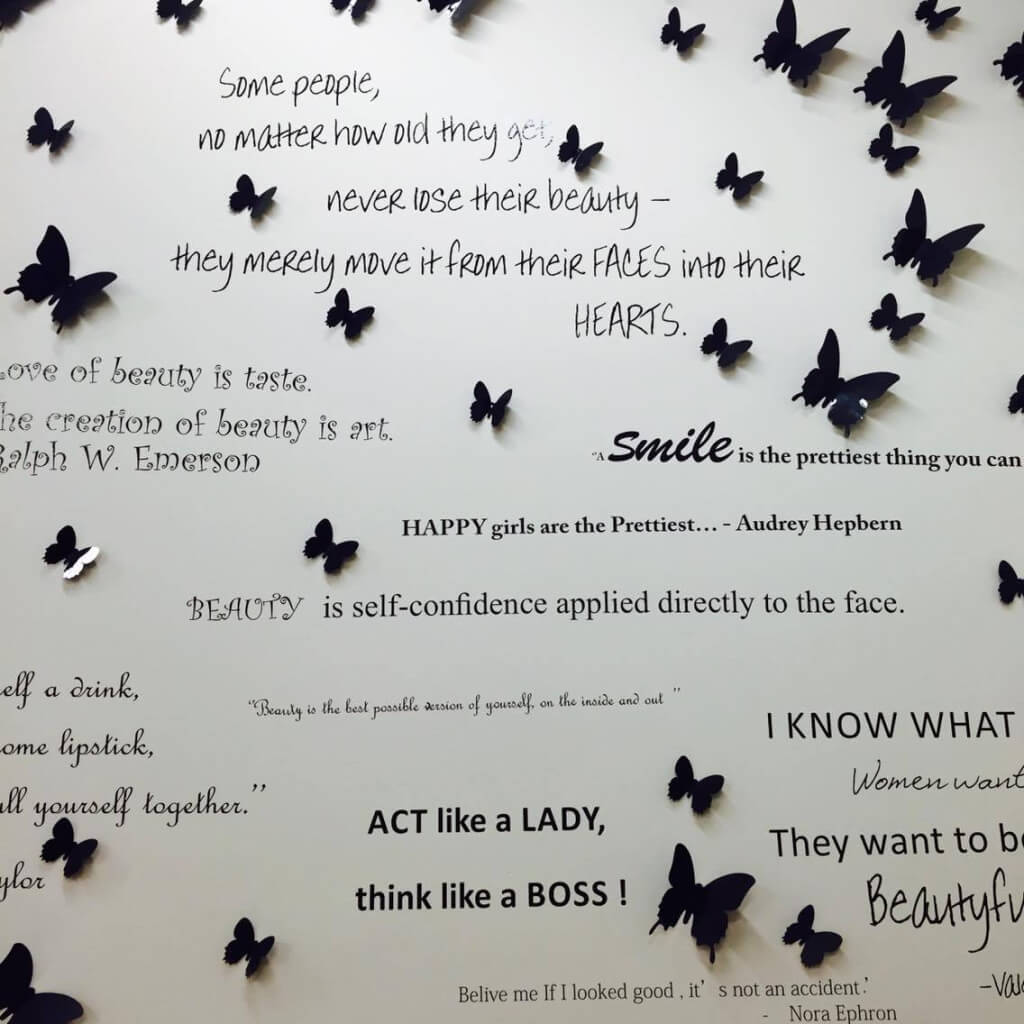 Some people,
no matter how old they get,
never lose their beauty –
they merely move it from their FACES into their
HEARTS.
Love of beauty is taste.
he creation of beauty is art.
Ralph W. Emerson
"A Smile is the prettiest thing you can
HAPPY girls are the Prettiest... - Audrey Hepbern
BEAUTY is self-confidence applied directly to the face.
elf a drink,
ome lipstick,
ll yourself together."
ylor
"Beauty is the best possible version of yourself, on the inside and out "
I KNOW WHAT
Women want
They want to be
Beautyfu
-Val
ACT like a LADY,
think like a BOSS !
Belive me If I looked good , it' s not an accident.'
- Nora Ephron